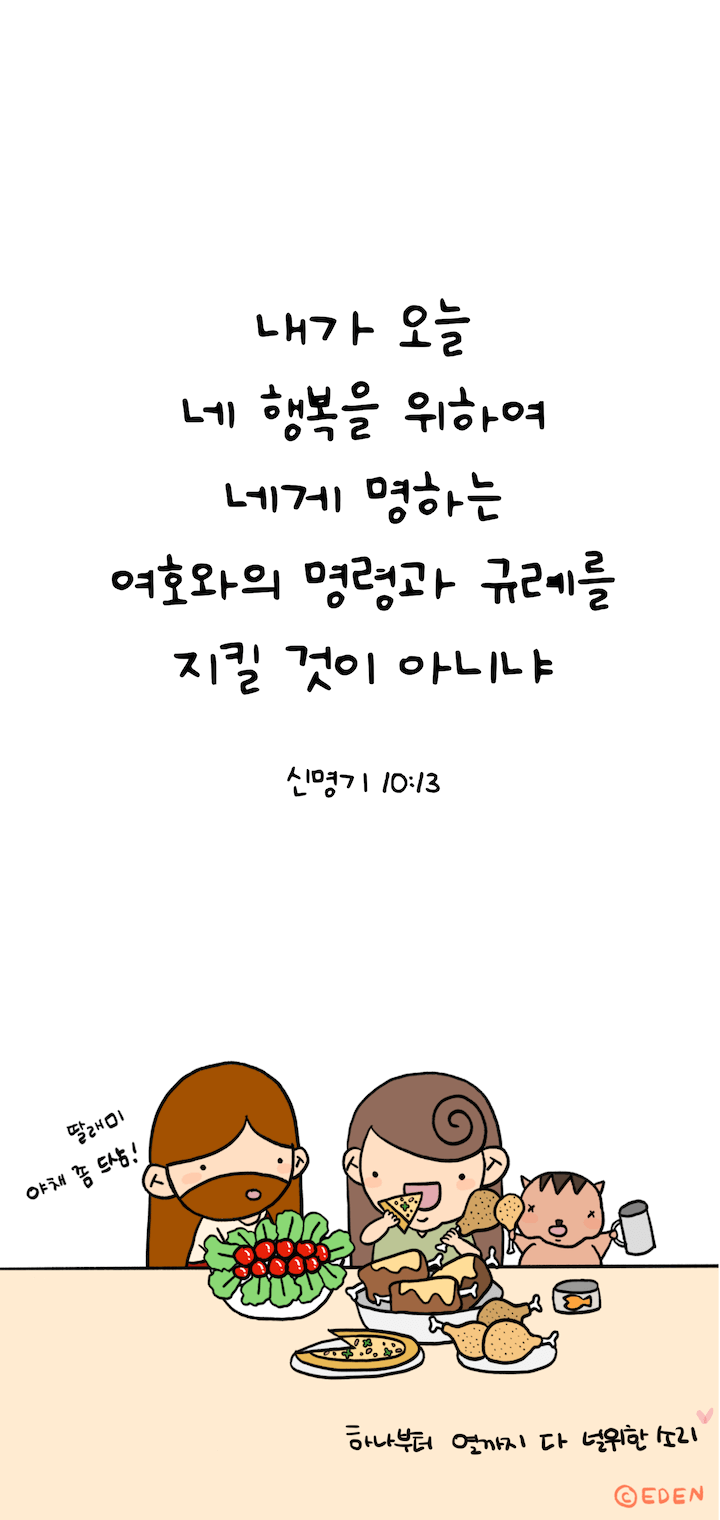 내가 오늘
네 행복을 위하여
네게 명하는
여호와의 명령과 규례를
지킬 것이 아니냐
신명기 10:13
딸래미
야채 좀 드삼!
하나부터 열까지 다 널위한 소리
©EDEN